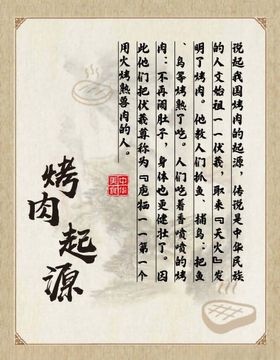 说起我国烤肉的起源，传说是中华民族
的人文始祖一一伏羲，取来『天火』发
明了烤肉。他教人们抓鱼、捕鸟：把鱼
、鸟等烤熟了吃。人们吃着香喷喷的烤
肉：不再闹肚子，身体也更健壮了。因
此他们把伏羲尊称为『庖牺一一第一个
用火烤熟兽肉的人。
中华
美食
烤肉起源